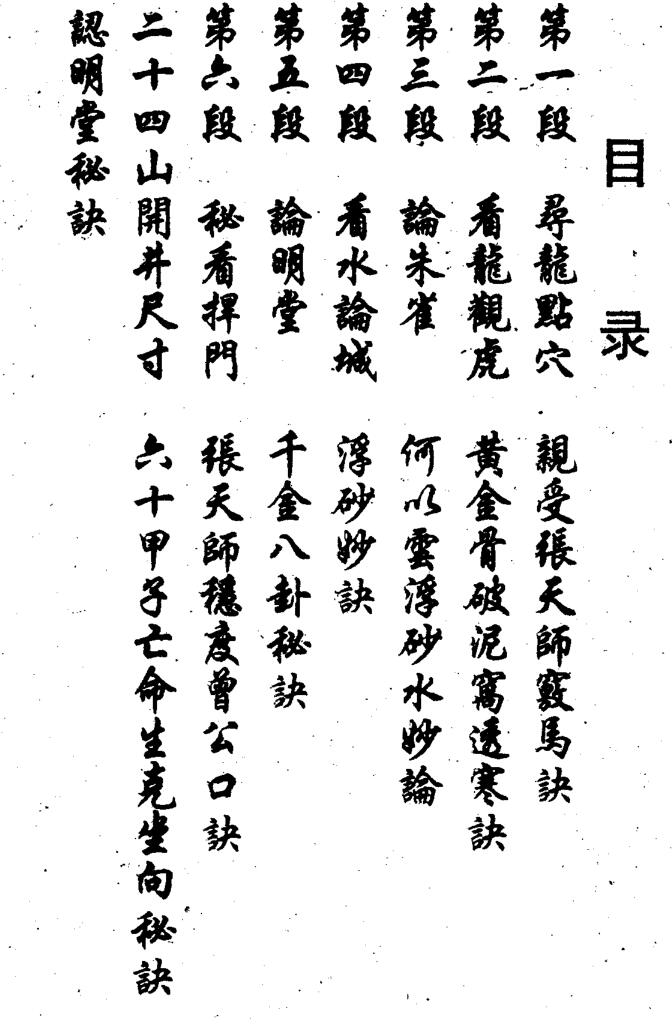 目录
第一段 尋龍點穴 親受張天師竅馬訣
第二段 看龍觀虎 黃金骨破泥窩透寒訣
第三段 論朱雀 何以雲浮砂水妙論
第四段 看水論城 浮砂妙訣
第五段 論明堂 千金八卦秘訣
第六段 秘看捍門 張天師穩度曾公口訣
二十四山開井尺寸 六十甲子亡命生克坐向秘訣
認明堂秘訣